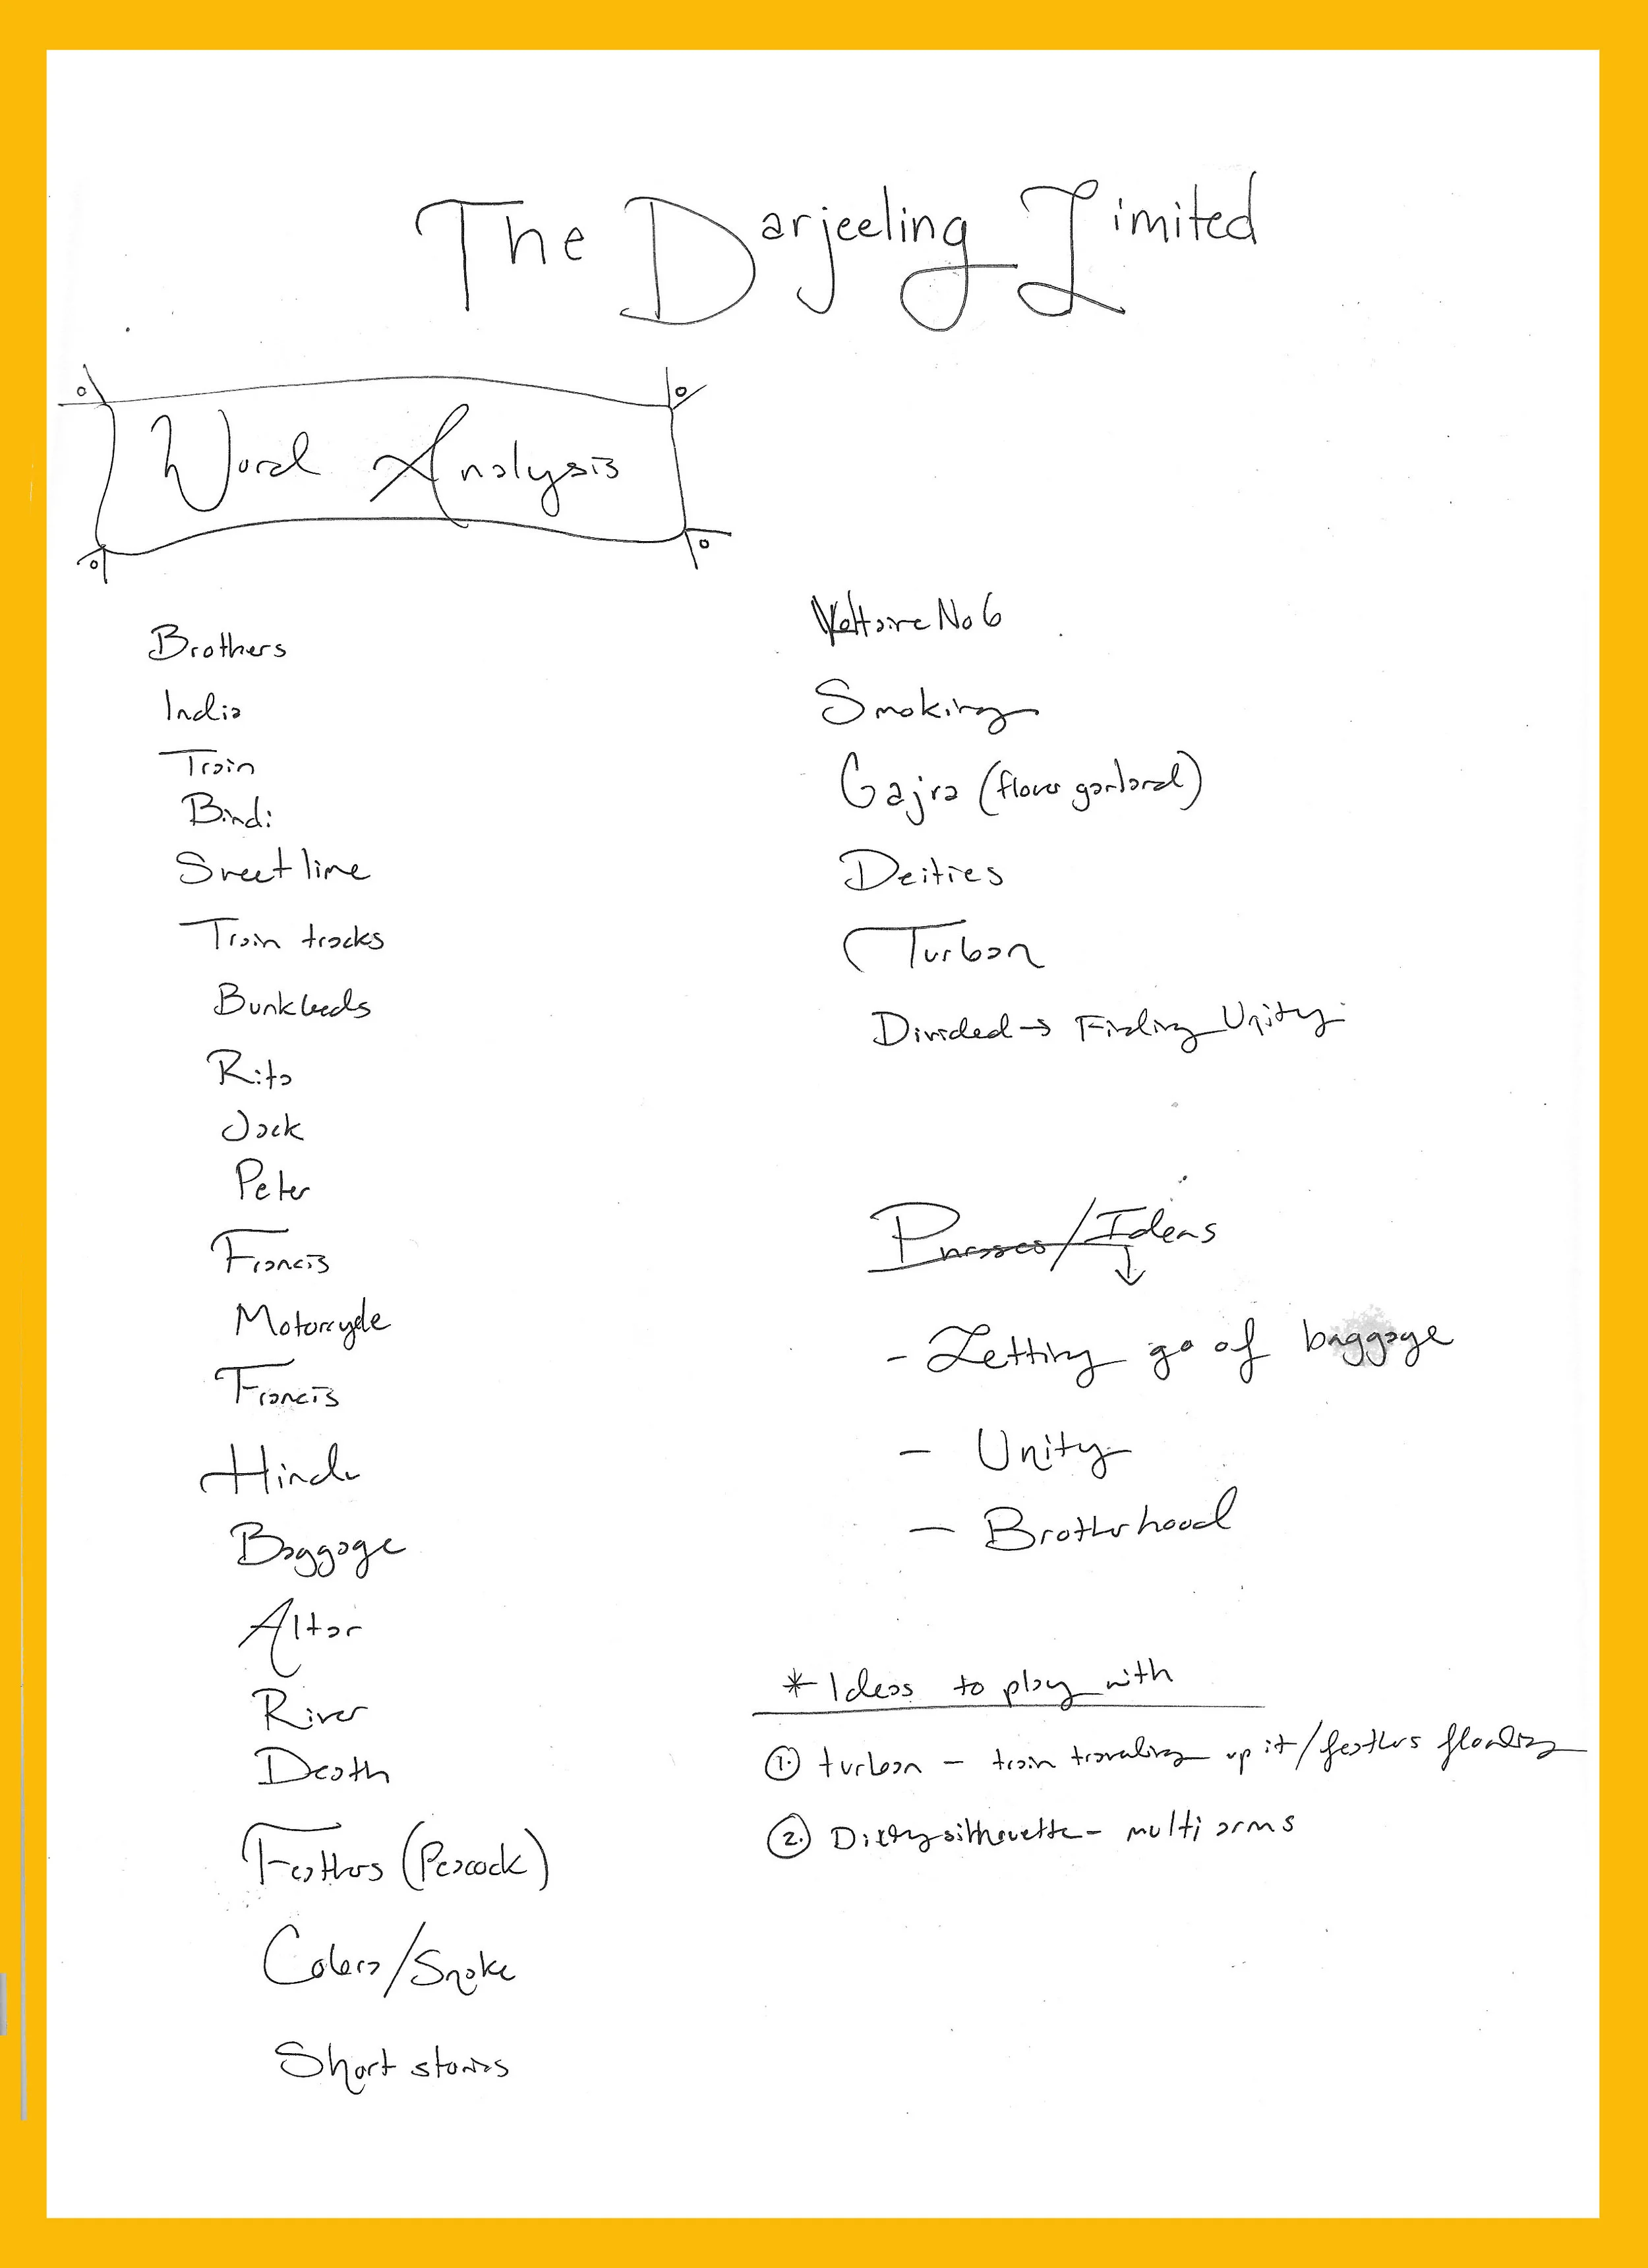 The Darjeeling Limited
Word Analysis
Brothers
India
Train
Bindi
Sweet lime
Train tracks
Bunkbeds
Rita
Jack
Peter
Francis
Motorcycle
Francis
Hindu
Baggage
Altar
River
Death
Feathers (Peacock)
Colors/Snake
Short stories
Voltaire No 6
Smoking
Gajra (flower garland)
Deities
Turban
Divided → Finding Unity
/Ideas
- Letting go of baggage
- Unity
- Brotherhood
* Ideas to play with
1. turban - train traveling up it/feathers floating
2. silhouette - multi arms